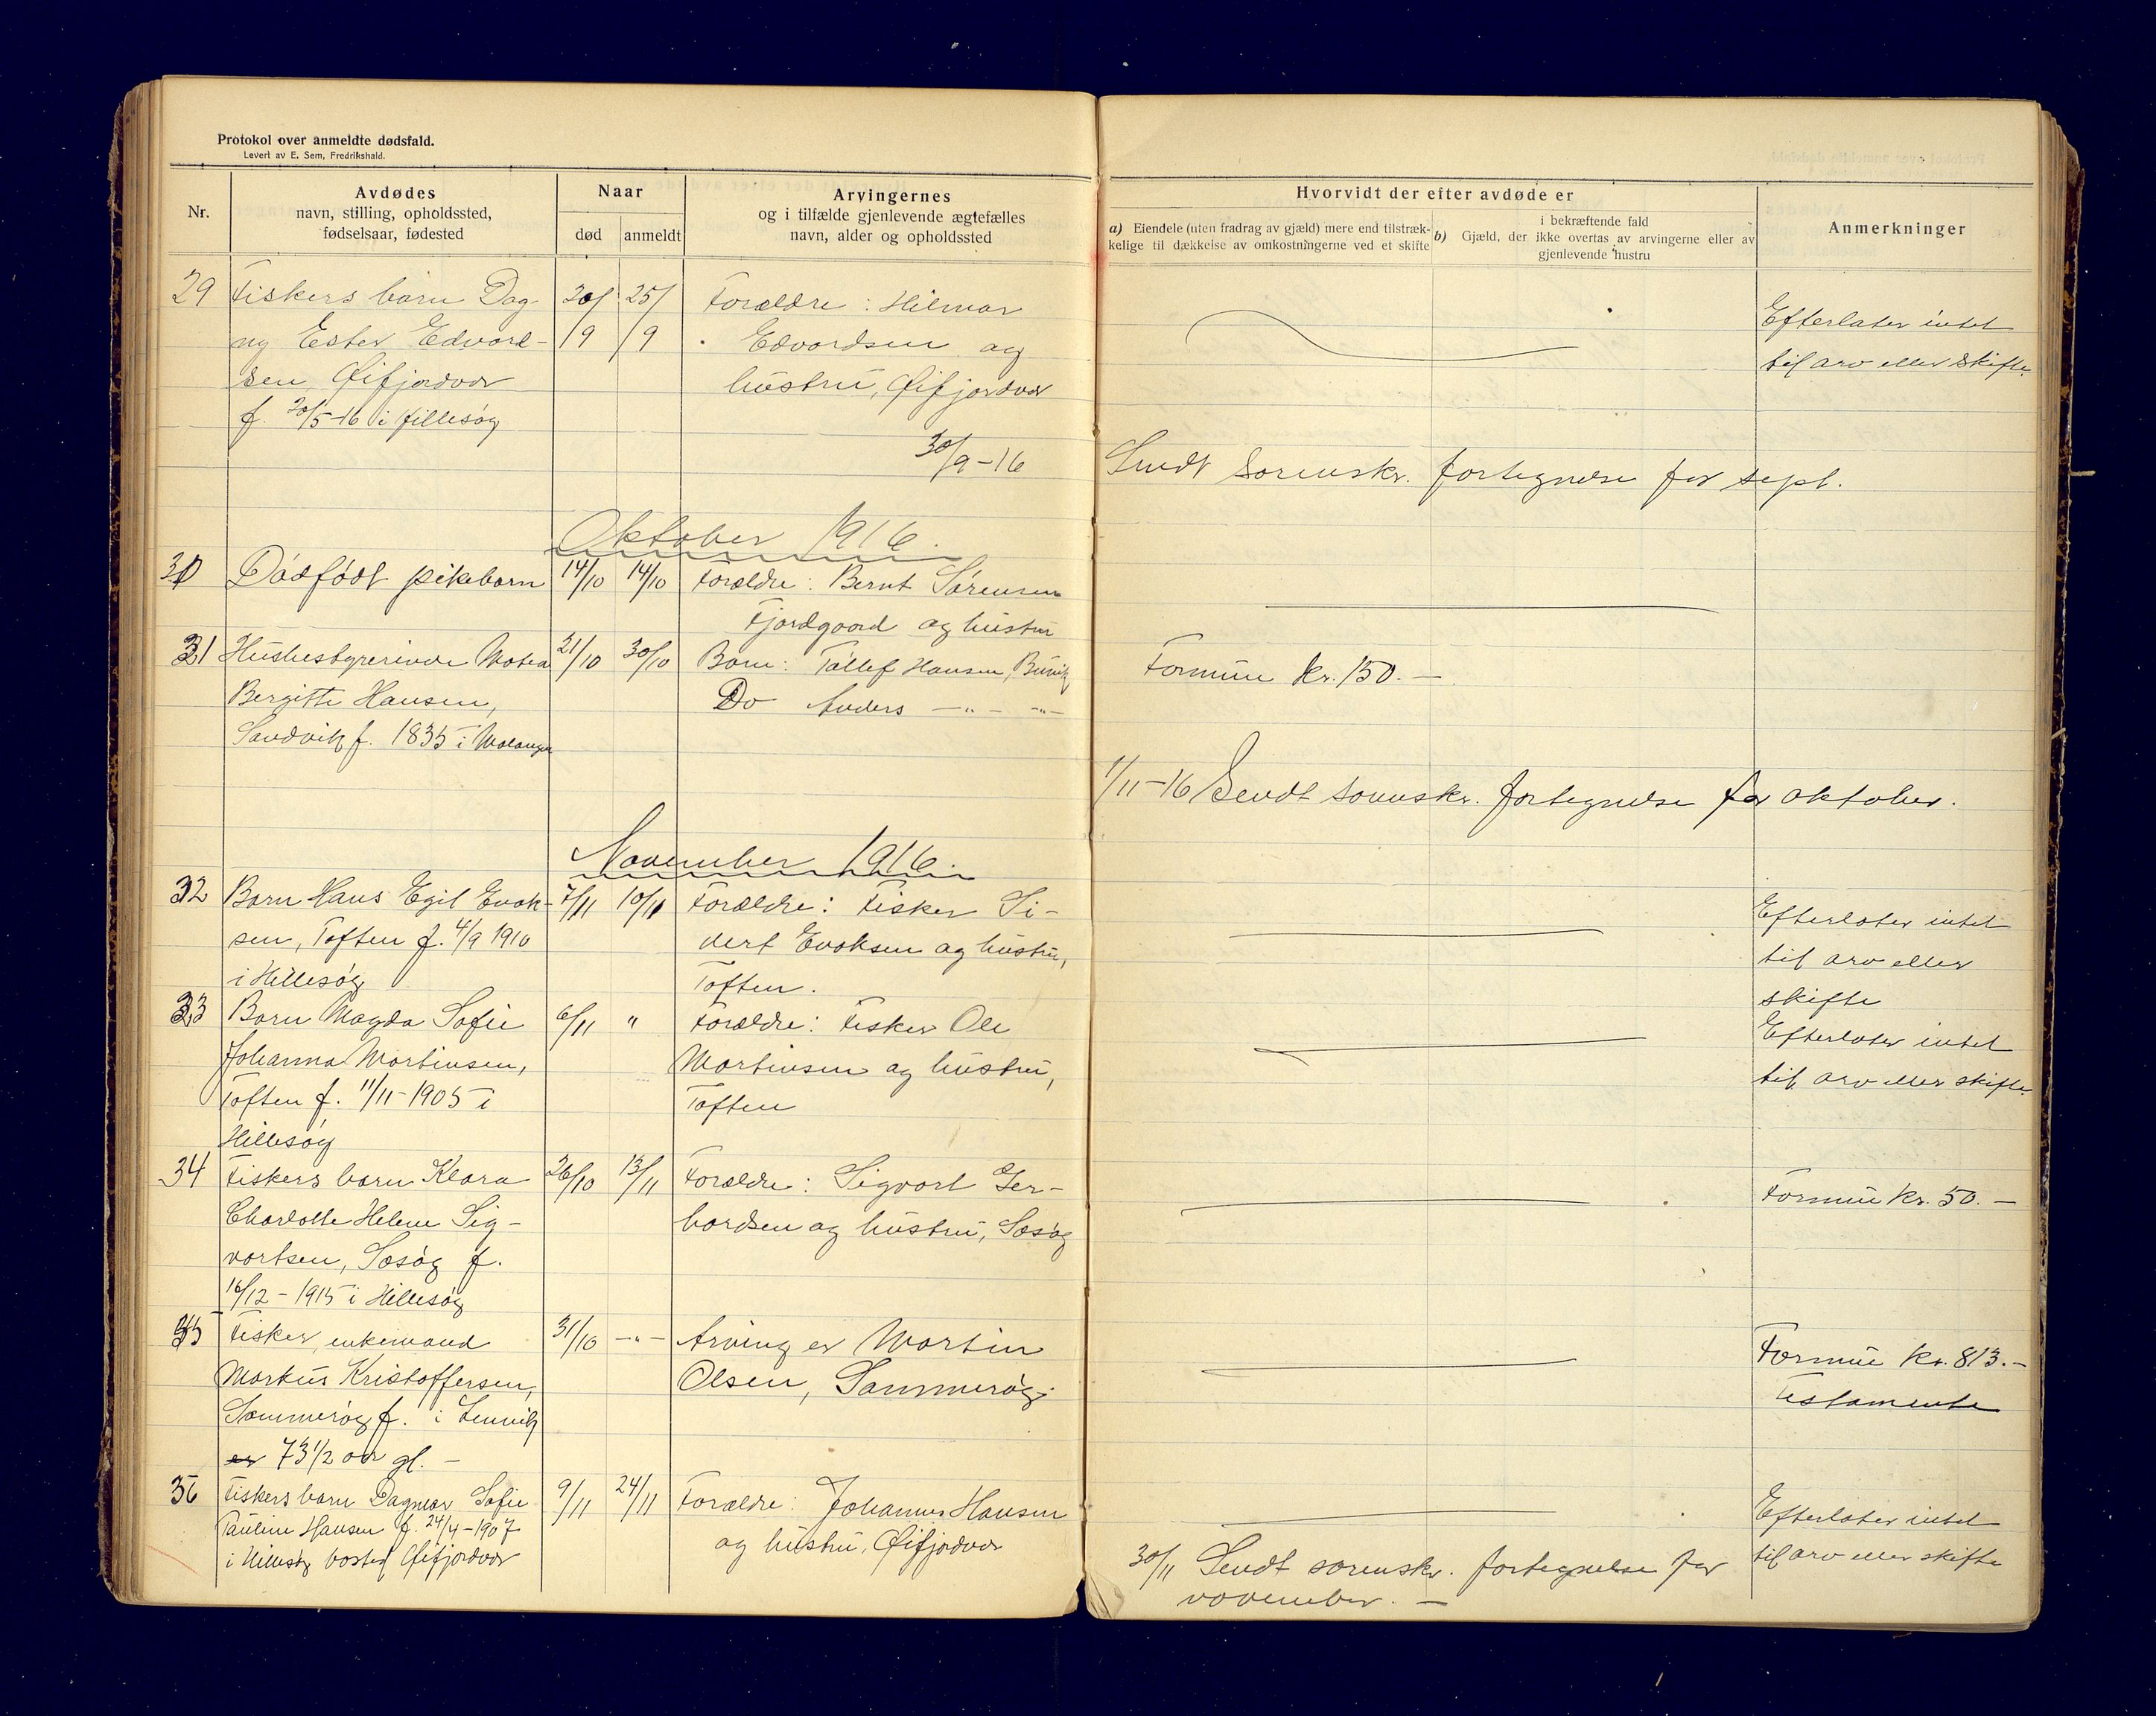 Protokol over anmeldte dødsfald.
Levert av E. Sem, Fredrikshald.
Nr.
Avdødes
navn, stilling, opholdssted,
fødselsaar, fødested
Naar
død
anmeldt
Arvingernes
og i tilfælde gjenlevende ægtefælles
navn, alder og opholdssted
Hvorvidt der efter avdøde er
a) Eiendele (uten fradrag av gjæld) mere end tilstræk-
kelige til dækkelse av omkostningerne ved et skifte
i bekræftende fald
b) Gjæld, der ikke overtas av arvingerne eller av
gjenlevende hustru
Anmerkninger
29
Fiskers barn Dag-
ny Ester Edvard-
sen, Øifjordvær
f. 20/5-16 i Hillesøy
20/9
25/9
Forældre: Hilmar
Edvardsen og
hustru, Øifjordvær
Efterlater intet
til arv eller skifte.
30/9-16
Sendt sorenskr. fortegnelse for sept.
Oktober 1916.
30
Dødfødt pikebarn
14/10
14/10
Forældre: Bernt Sørensen
Fjordgaard og hustru
31
Husbestyrerinde
Bergitte Hansen,
Sandvik f. 1835 i Malangen
21/10
30/10
Barn: Tollef Hansen,
Do Anders -"- -"-
Formue kr. 150.-
1/11-16 Sendt sorenskr. fortegnelse for oktober.
November 1916.
32
Barn Hans Egil Enok-
sen, Toften f. 4/9 1910
i Hillesøy
7/11
10/11
Forældre: Fisker Si-
vert Enoksen og hustru,
Toften.
Efterlater intet
til arv eller
skifte
33
Barn Magda Sofie
Johanna Martinsen,
Toften f. 11/11-1905 i
Hillesøy
6/11
"
Forældre: Fisker Ole
Martinsen og hustru,
Toften
Efterlater intet
til arv eller skifte.
34
Fiskers barn Klara
Charlotte Helene Sig-
vartsen, Søsøy f.
16/12-1915 i Hillesøy
26/10
13/11
Forældre: Sigvart Ger-
hardsen og hustru, Søsøy
Formue kr. 50.-
35
Fisker, enkemand
Markus Kristoffersen,
Sommerøy f. i Lenvik
er 73 1/2 aar gl. -
31/10
-"-
Arving er Martin
Olsen, Sommerøy.
Formue kr. 813.-
Testamente
36
Fiskers barn Dagmar Sofie
Pauline Hansen f. 24/4-1907
i Hillesøy bosted Øifjordvær
9/11
24/11
Forældre: Johannes Hansen
og hustru, Øifjordvær
Efterlater intet
til arv eller skifte
30/11 Sendt sorenskr. fortegnelse for
november. -